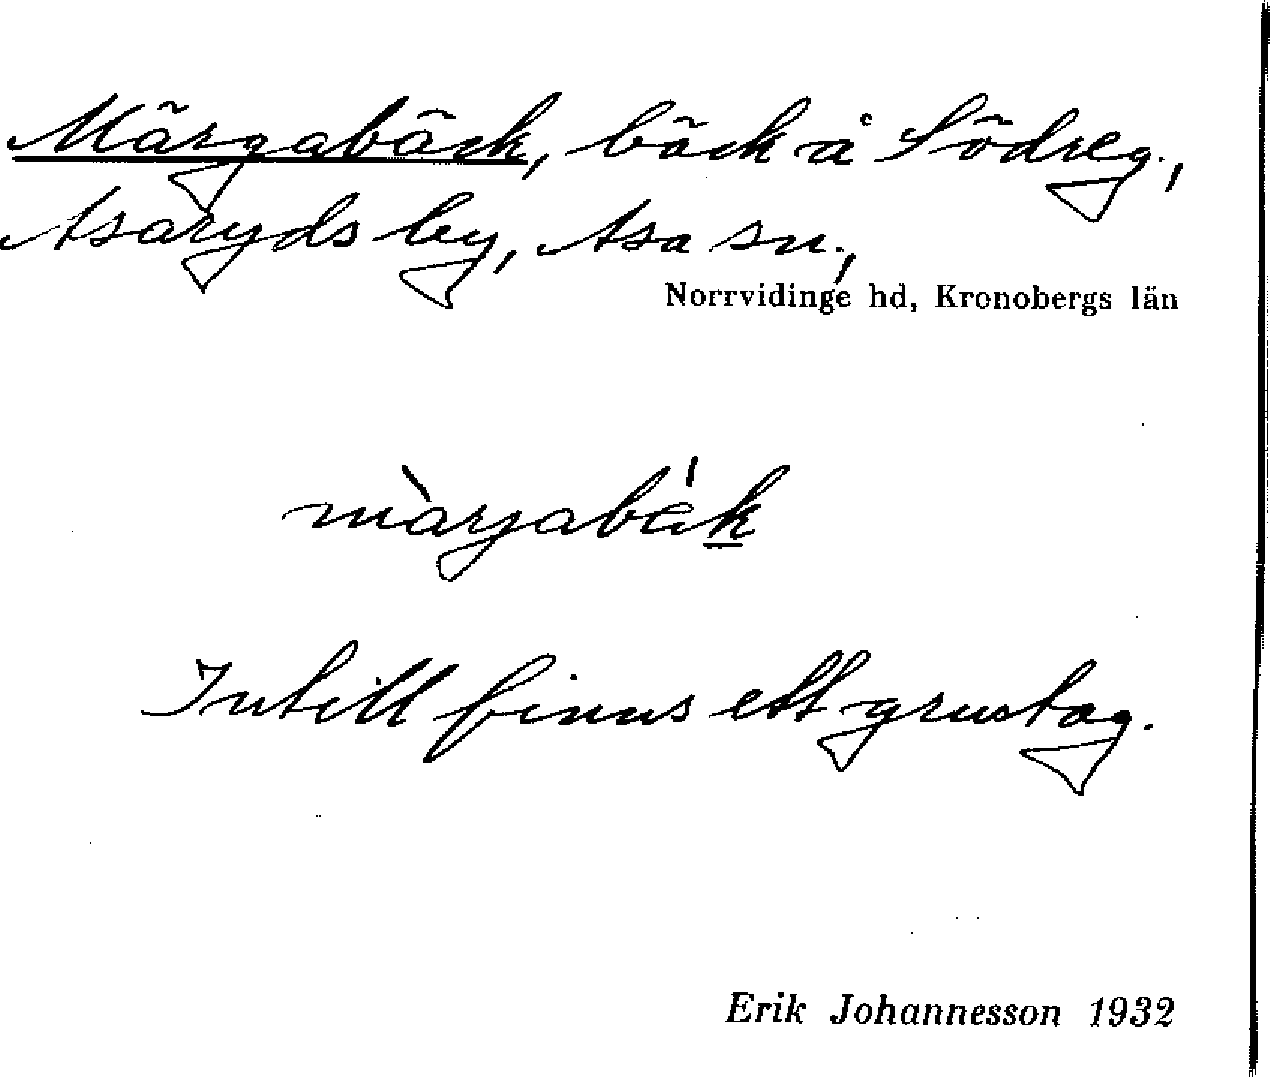 Märgabäck, bäck å Södreg.,
Asaryds by, Asa sn.,
Norrvidinge hd, Kronobergs län
màrjabák
Intill finns ett grustag.
Erik Johannesson 1932